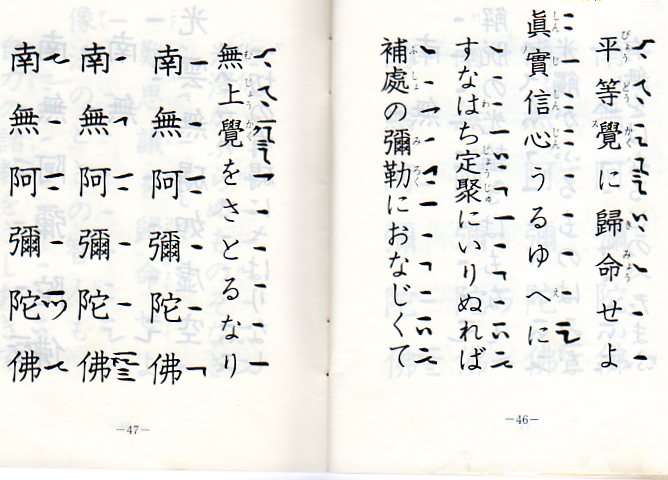 平等覺に歸命せよ
眞實信心うるゆへに
すなはち定聚にいりぬれば
補處の彌勒におなじくて
－46－
無上覺をさとるなり
南無阿彌陀佛
南無阿彌陀佛
南無阿彌陀佛
－47－